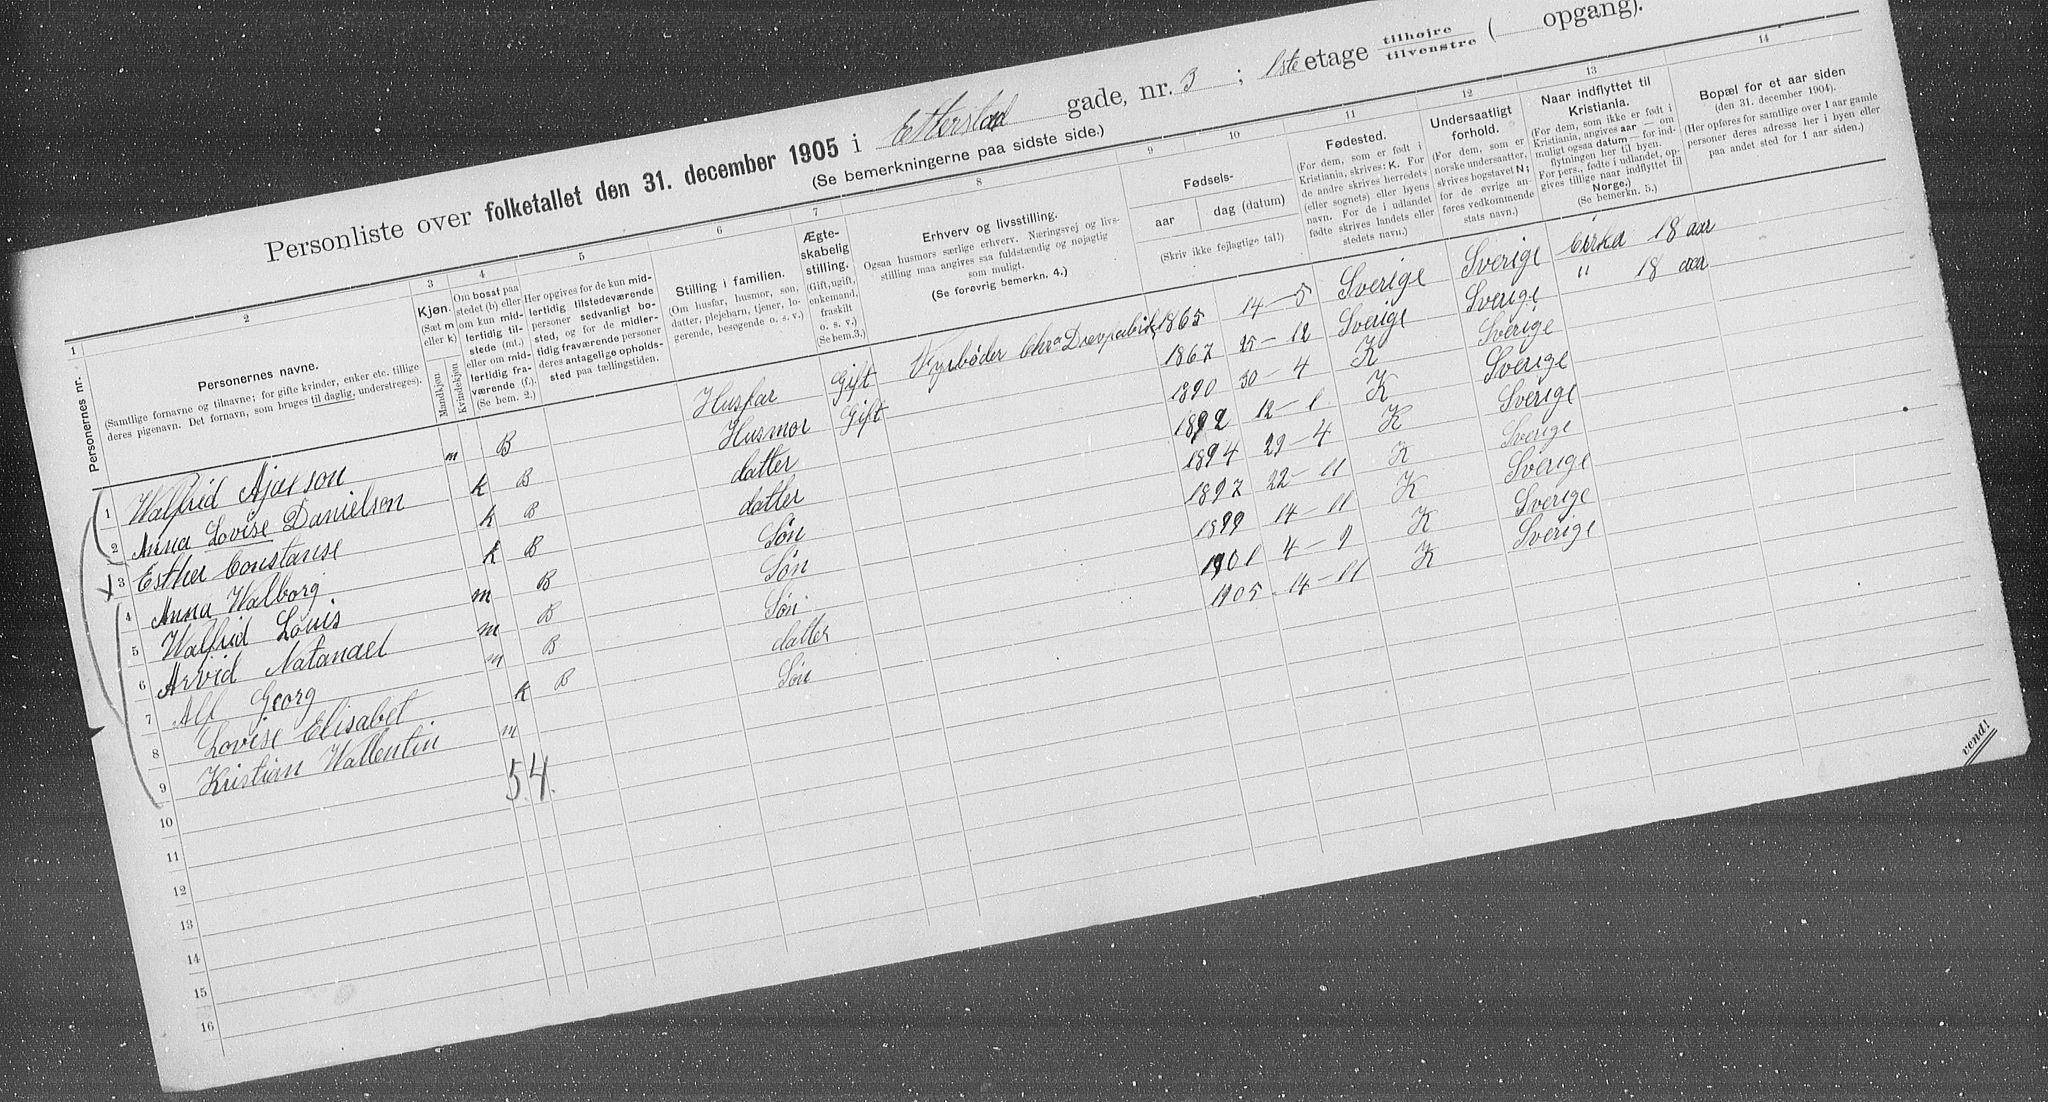 Personliste over folketallet den 31. december 1905 i Etterstad gade, nr. 3 ; 1ste etage tilhøjre / tilvenstre ( opgang).
(Se bemerkningerne paa sidste side.)
1 2 3 4 5 6 7 8 9 10 11 12 13 14
Personernes nr.
Personernes navne.
(Samtlige fornavne og tilnavne; for gifte kvinder, enker etc. tillige
deres pigenavn. Det fornavn, som bruges til daglig, understreges).
Kjøn.
(Sæt m
eller k)
Mandkjøn
Kvindekjøn
Om bosat paa
stedet (b) eller
om kun mid-
lertidig til-
stede (mt.)
eller om mid-
lertidig fra-
værende (f.).
(Se bem. 2.)
Her opgives for de kun mid-
lertidig tilstedeværende
personer sedvanligt bo-
sted, og for de midler-
tidig fraværende personer
deres antagelige opholds-
sted paa tællingstiden.
Stilling i familien.
(Om husfar, husmor, søn,
datter, plejebarn, tjener, lo-
gerende, besøgende o. s. v.)
Ægte-
skabelig
stilling.
(Gift, ugift,
enkemand,
fraskilt
o. s. v.)
(Se bem.3.)
Erhverv og livsstilling.
Ogsaa husmors særlige erhverv. Næringsvej og livs-
stilling maa angives saa fuldstændig og nøjagtig
som muligt.
(Se forøvrig bemerkn. 4.)
Fødsels-
aar
dag (datum)
(Skriv ikke fejlagtige tal!)
Fødested.
(For dem, som er født i
Kristiania, skrives: K. For
de andre skrives herredets
(eller sognets) eller byens
navn. For de i udlandet
fødte skrives landets eller
stedets navn.)
Undersaatligt
forhold.
(For dem, som er
norske undersaatter,
skrives bogstavet N;
for de øvrige an-
føres vedkommende
stats navn.)
Naar indflyttet til
Kristiania.
(For dem, som ikke er født i
Kristiania, angives aar — om
muligt ogsaa datum — for ind-
flytningen her til byen.
For pers., fødte i udlandet, op-
gives tillige naar indflyttet til
Norge.)
(Se bemerkn. 5.)
Bopæl for et aar siden
(den 31. december 1904).
(Her opføres for samtlige over 1 aar gamle
personer deres adresse her i byen eller
paa andet sted for 1 aar siden.)
1 Walfrid Ajalson m B Husfar Gift Fyrbøder Chra 1865 14 – 5 Sverige Sverige Cirka 18 aar
2 Anna Lovise Danielson k B Husmor Gift 1867 25 – 12 Sverige Sverige " 18 aar
3 Esther Constanse k B datter 1890 30 – 4 K Sverige
4 Anna Walborg k B datter 1892 12 – 1 K Sverige
5 Walfrid Louis m B Søn 1894 29 – 4 K Sverige
6 Arvid Natanael m B Søn 1897 22 – 11 K Sverige
7 Alf Georg m B Søn 1899 14 – 11 K Sverige
8 Lovise Elisabet k B datter 1901 4 – 9 K Sverige
9 Kristian Wallentin m Søn 1905 14 – 11 K Sverige
5.4.
10
11
12
13
14
15
16
vend!